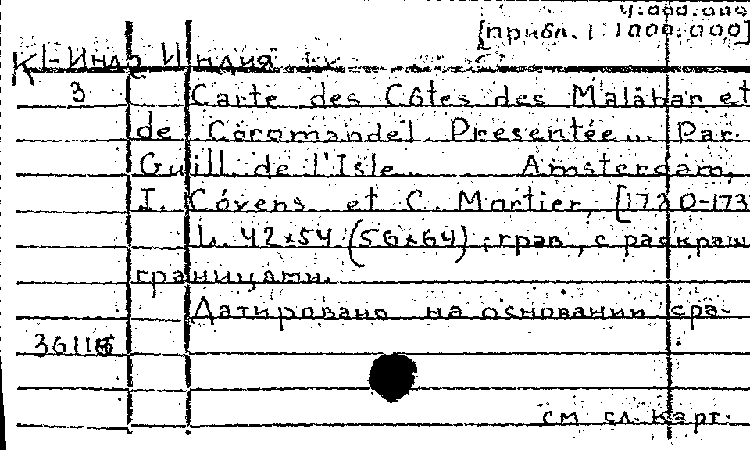 4.000.000
[прибл. 1:1000.000]
К1-Инд Индия
3 Carte des Côtes des Malabar et
de Coromandel Presentée... Par
Guill. de l'Isle. Amsterdam,
I. Cóvens et C. Mortier, [1720-173
42x54 (56x64); грав., с раскраш
границами.
Датировано на основании сра-
см. сл. карт.